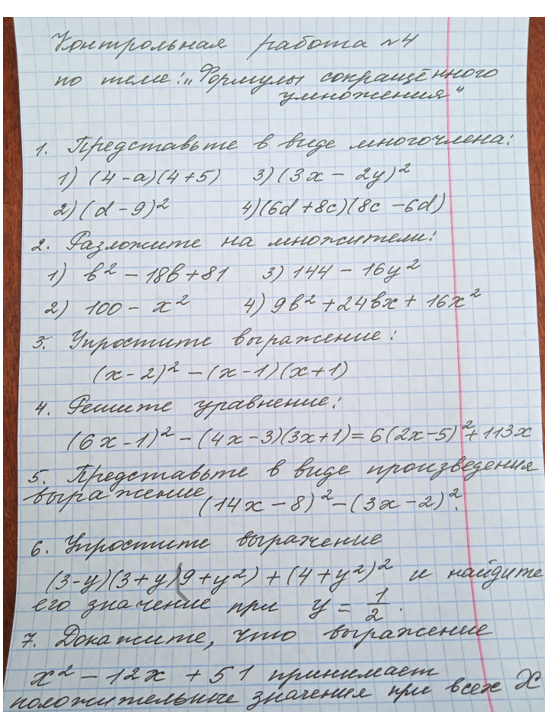 Контрольная работа №4
по теме: „Формулы сокращённого
умножения"
1. Представьте в виде многочлена:
1) (4-a)(4+5) 3) (3x - 2y)²
2) (d-9)² 4) (6d+8c)(8c-6d)
2. Разложите на множители:
1) b² - 18b + 81 3) 144 - 16y²
2) 100 - x² 4) 9b² + 24bx + 16x²
3. Упростите выражение:
(x-2)² - (x-1)(x+1)
4. Решите уравнение:
(6x-1)² - (4x-3)(3x+1) = 6(2x-5)² + 113x
5. Представьте в виде произведения
выражение (14x-8)² - (3x-2)².
6. Упростите выражение
(3-y)(3+y)(9+y²) + (4+y²)² и найдите
его значение при y = 1/2.
7. Докажите, что выражение
x² - 12x + 51 принимает
положительные значения при всех x